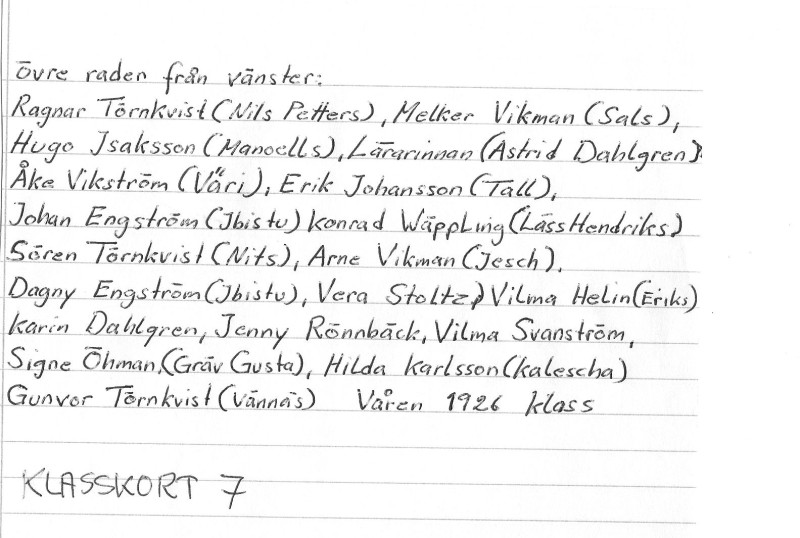 Övre raden från vänster:
Ragnar Törnkvist (Nils Petters), Melker Vikman (Sals),
Hugo Isaksson (Manoells), Lärarinnan (Astrid Dahlgren).
Åke Vikström (Våri), Erik Johansson (Tall),
Johan Engström (Ibistu) Konrad Wäppling (Läss Hendriks)
Sören Törnkvist (Nits), Arne Vikman (Jesch),
Dagny Engström (Ibistu), Vera Stoltz, Vilma Helin (Eriks)
Karin Dahlgren, Jenny Rönnbäck, Vilma Svanström,
Signe Öhman, (Gräv Gusta), Hilda Karlsson (Kalescha)
Gunvor Törnkvist (Vännäs) Våren 1926 klass
KLASSKORT 7